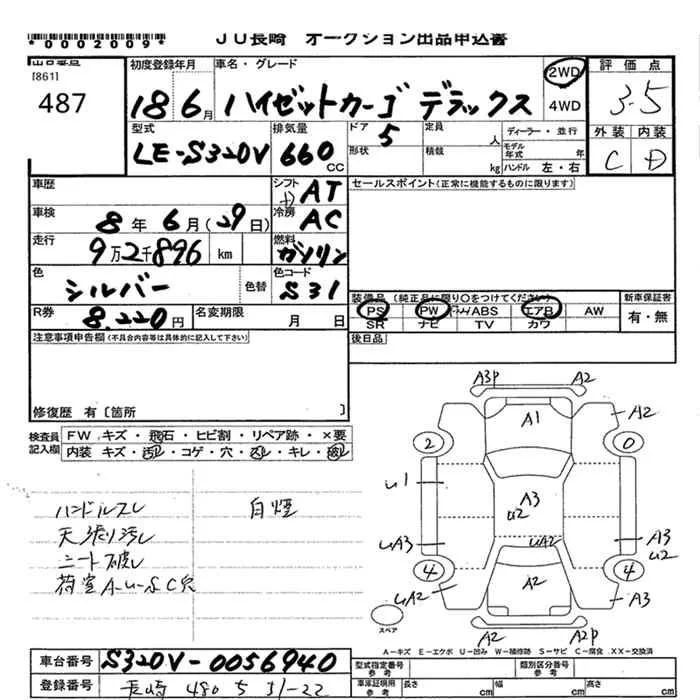 *0002009*
JU長崎 オークション出品申込書
[861]
487
初度登録年月
18 6月
車名・グレード
ハイゼットカーゴ デラックス
2WD
4WD
評価点
3.5
外装 内装
C D
型式
LE-S320V
排気量
660 CC
ドア
5
形状
定員
人
積載
kg
ディーラー・並行
モデル年式 年
ハンドル 左・右
車歴
シフト
AT
セールスポイント(正常に機能するものに限ります)
車検
8年 6月(29日)
冷房
AC
走行
9万2千896 km
燃料
ガソリン
色
シルバー
色替
色コード
S31
装備品 (純正品に限り○をつけてください)
PS PW ABS エアB AW
SR ナビ TV カワ
新車保証書
有・無
R券
8,220円
名変期限
月 日
後日品
注意事項申告欄(不具合内容等は具体的に記入して下さい)
修復歴 有〔箇所 〕
検査員記入欄
FW キズ・飛石・ヒビ割・リペア跡・×要
内装 キズ・汚レ・コゲ・穴・スレ・キレ・破レ
ハンドルスレ
自煙
天張り汚レ
シート破レ
荷室A-U-SC穴
A3P A2
A1
A2
2 0
U1
A3
U2
UA3
UA2
A3
U2
4 4
UA2
A2
A3
スペア
A2 A2P
A-キズ E-エクボ U-凹み W-補修跡 S-サビ C-腐食 XX-交換済
車台番号
S320V-0056940
型式指定番号
参考
類別区分番号
参考
登録番号
長崎 480 5 31-22
車庫証明用
参考
長さ cm
幅 cm
高さ cm